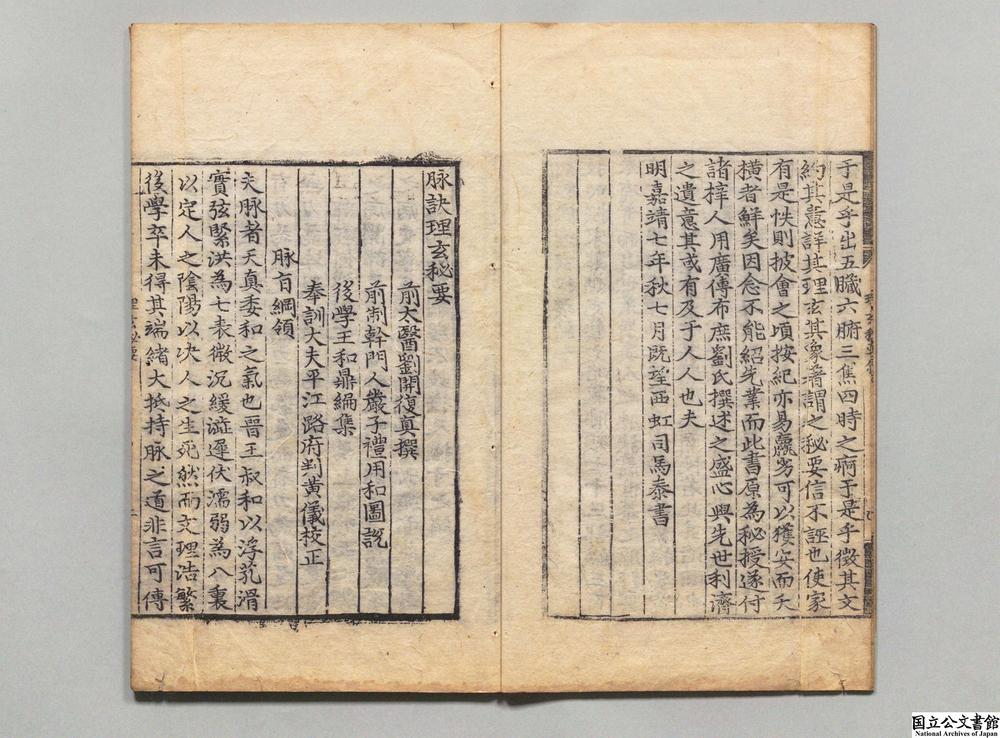 于是乎出五臟六腑三焦四時之痾于是乎徵其文
約其意詳其理玄其象著謂之秘要信不誣也使家
有是帙則披會之頃按紀亦易羸劣可以獲安而夭
橫者鮮矣因念不能紹先業而此書原為秘授遂付
諸梓人用廣傳布庶劉氏撰述之盛心與先世利濟
之遺意其或有及于人人也夫
明嘉靖七年秋七月既望西虹司馬泰書
脉訣理玄秘要
前太醫劉開復真撰
前制幹門人嚴子禮用和圖說
後學王和鼎編集
奉訓大夫平江路府判黃儀校正
脉肓綱領
夫脉者天真委和之氣也晋王叔和以浮芤滑
實弦緊洪為七表微沉緩澁遲伏濡弱為八裏
以定人之陰陽以决人之生死然而文理浩繁
後學卒未得其端緒大抵持脉之道非言可傳
国立公文書館
National Archives of Japan